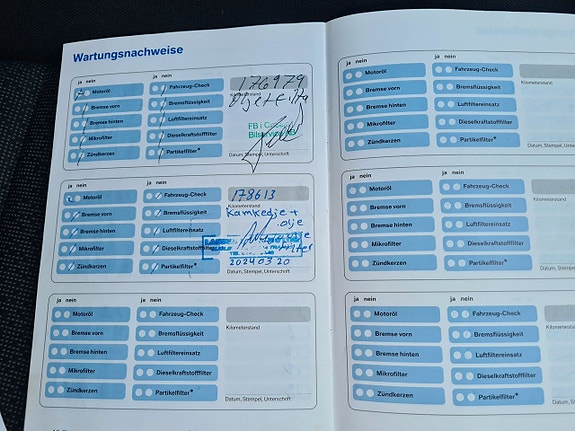 Wartungsnachweise
ja nein
ja nein
Motoröl
Bremse vorn
Bremse hinten
Mikrofilter
Zündkerzen
Fahrzeug-Check
Bremsflüssigkeit
Luftfiltereinsatz
Dieselkraftstofffilter
Partikelfilter*
176979
Kilometerstand
FB i
Datum, Stempel, Unterschrift
ja nein
ja nein
Motoröl
Bremse vorn
Bremse hinten
Mikrofilter
Zündkerzen
Fahrzeug-Check
Bremsflüssigkeit
Luftfiltereinsatz
Dieselkraftstofffilter
Partikelfilter*
178613
Kilometerstand
Kamkedje +
olje
20240320
Datum, Stempel, Unterschrift
ja nein
ja nein
Motoröl
Bremse vorn
Bremse hinten
Mikrofilter
Zündkerzen
Fahrzeug-Check
Bremsflüssigkeit
Luftfiltereinsatz
Dieselkraftstofffilter
Partikelfilter*
Kilometerstand
Datum, Stempel, Unterschrift
ja nein
ja nein
Motoröl
Bremse vorn
Bremse hinten
Mikrofilter
Zündkerzen
Fahrzeug-Check
Bremsflüssigkeit
Luftfiltereinsatz
Dieselkraftstofffilter
Partikelfilter*
ja nein
ja nein
Motoröl
Bremse vorn
Bremse hinten
Mikrofilter
Zündkerzen
Fahrzeug-Check
Bremsflüssigkeit
Luftfiltereinsatz
Dieselkraftstofffilter
Partikelfilter*
ja nein
ja nein
Motoröl
Bremse vorn
Bremse hinten
Mikrofilter
Zündkerzen
Fahrzeug-Check
Bremsflüssigkeit
Luftfiltereinsatz
Dieselkraftstofffilter
Partikelfilter*